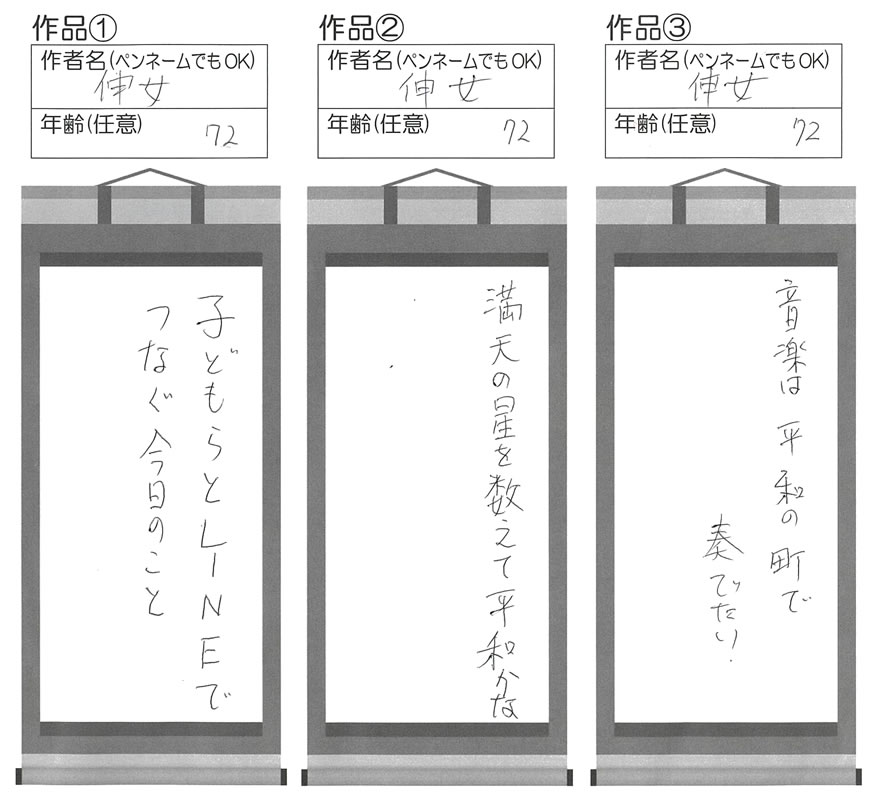 作品①
作者名(ペンネームでもOK)
伸女
年齢(任意)
72
子どもらとLINEで
つなぐ今日のこと
作品②
作者名(ペンネームでもOK)
伸女
年齢(任意)
72
満天の星を数えて平和かな
作品③
作者名(ペンネームでもOK)
伸女
年齢(任意)
72
音楽は平和の町で
奏でたい!